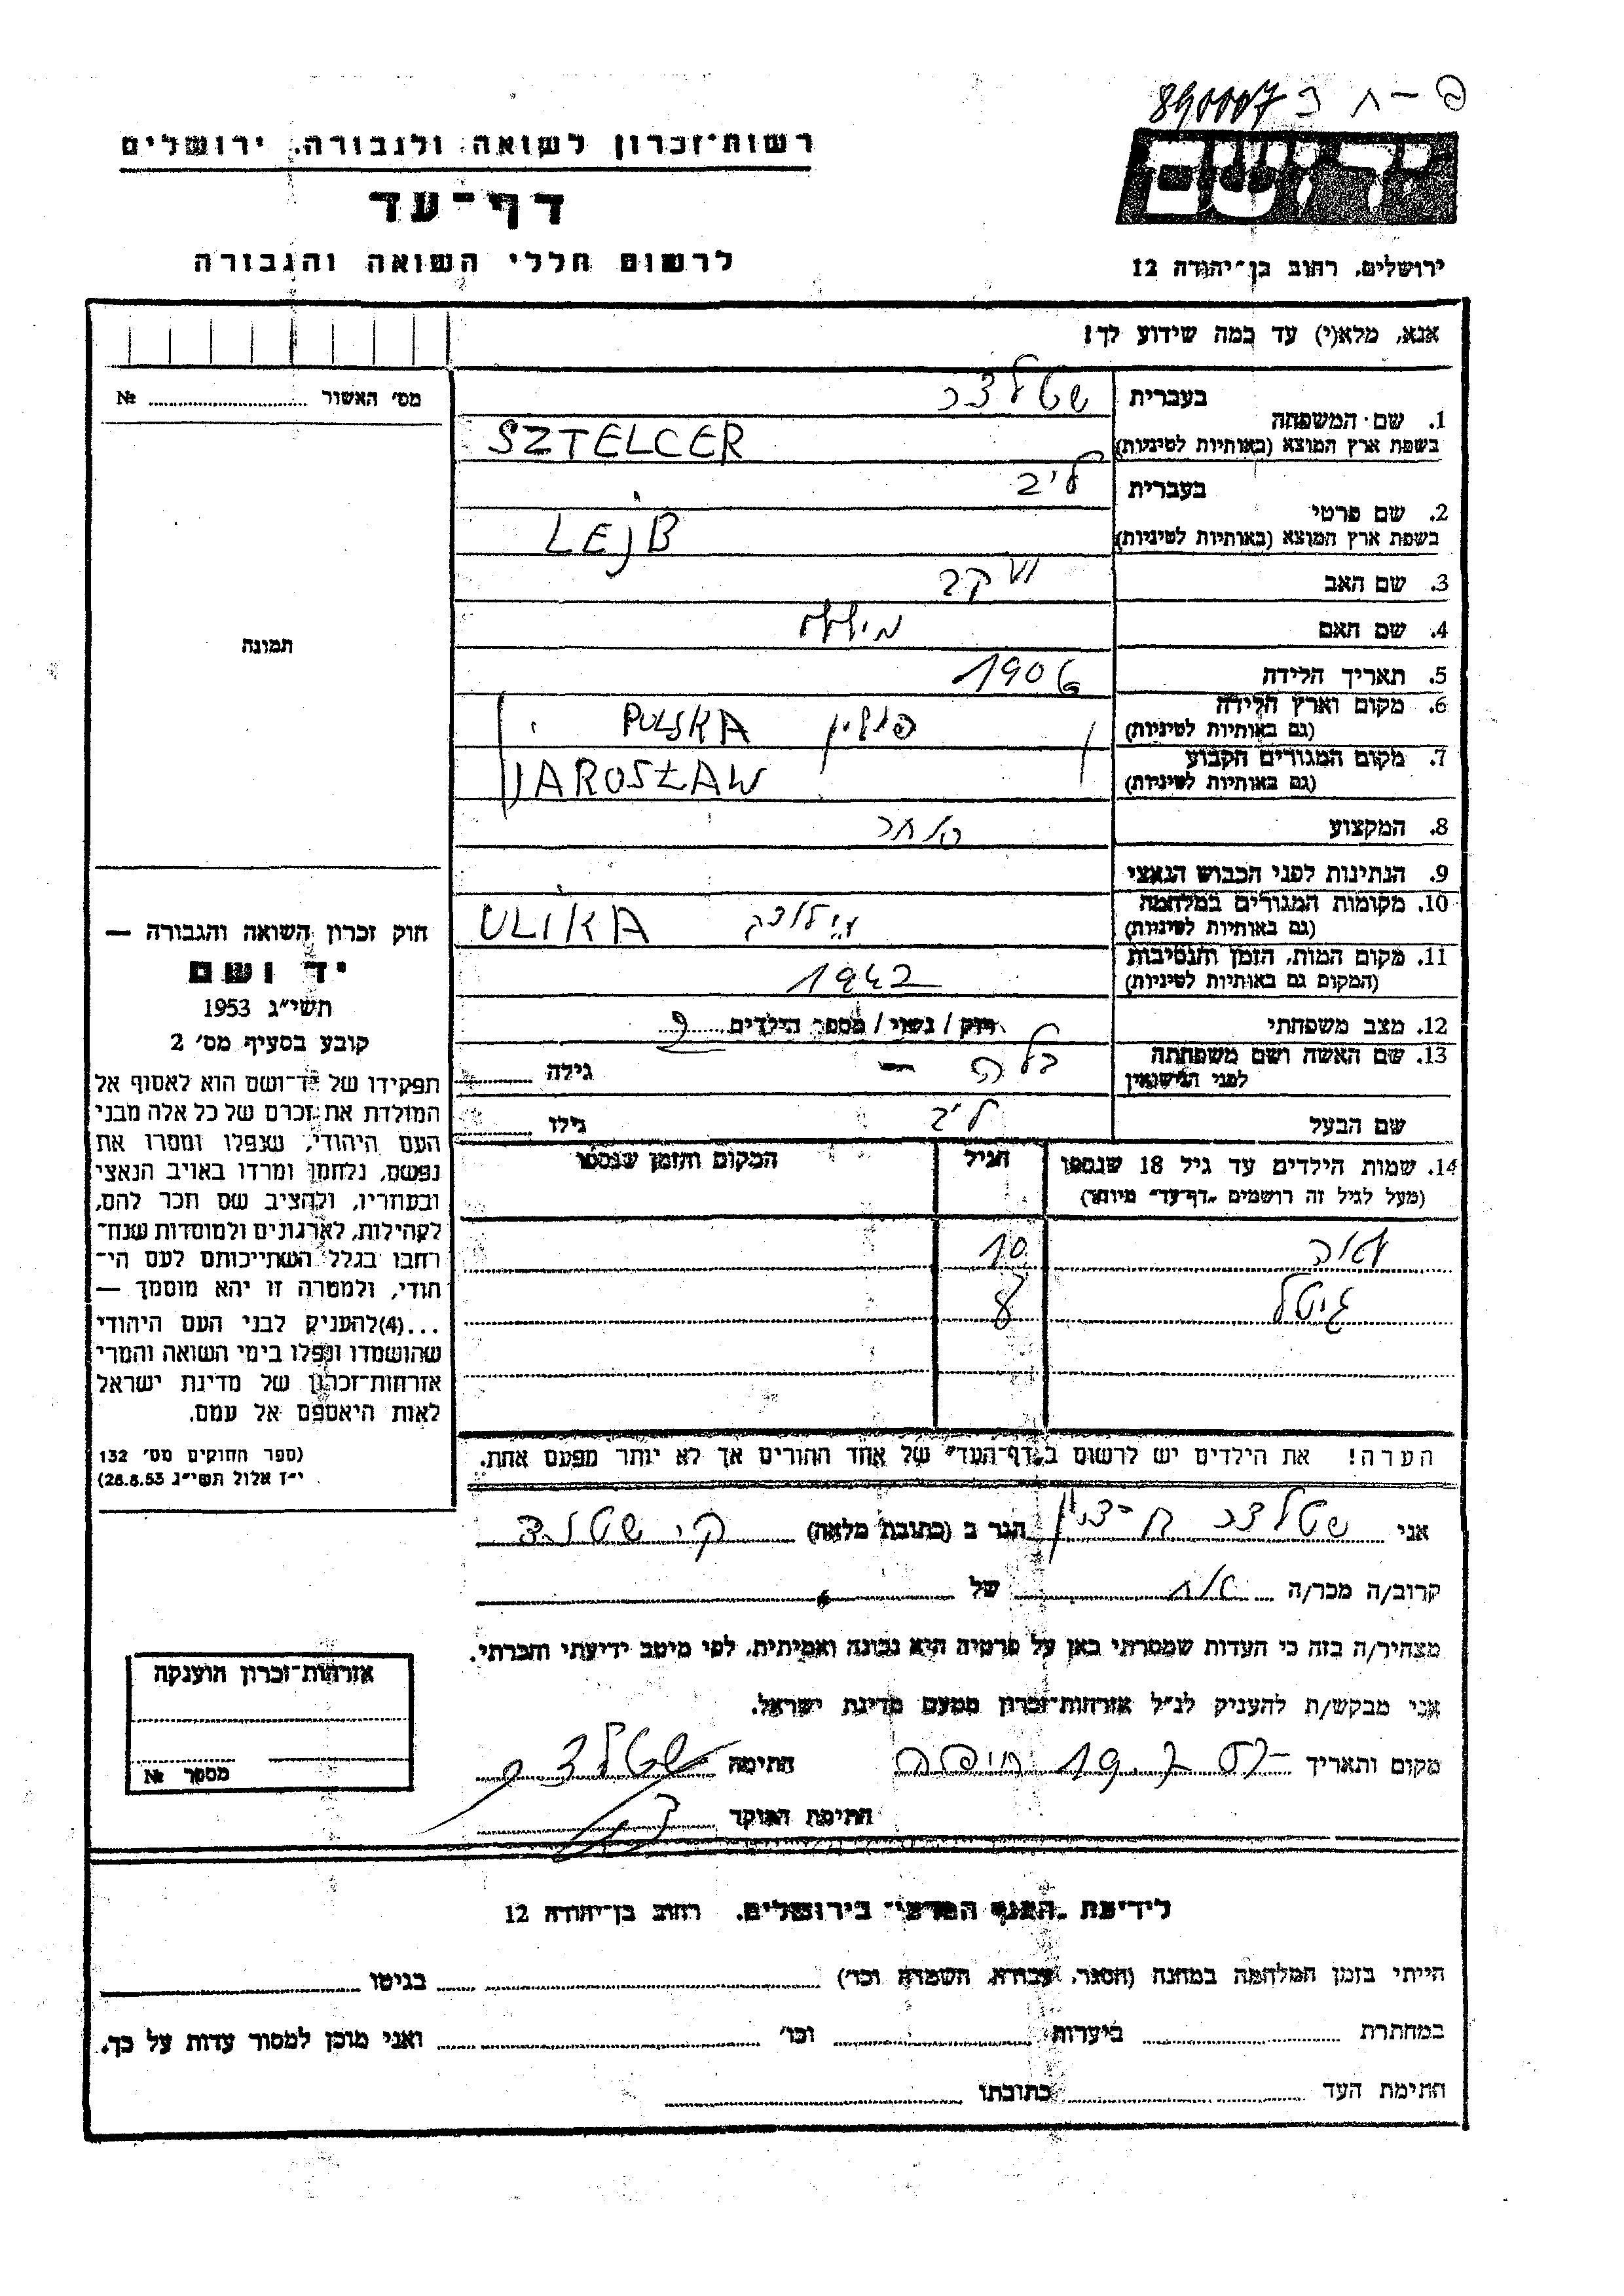 890007 פ - ח ר
יד ושם
ירושלים, רחוב בן־יהודה 12
רשות־זכרון לשואה ולגבורה, ירושלים
דף־עד
לרשום חללי השואה והגבורה
אנא, מלא(י) עד כמה שידוע לך!
1. שם המשפחה בעברית שטלצר
בשפת ארץ המוצא (באותיות לטיניות) SZTELCER
2. שם פרטי בעברית ליב
בשפת ארץ המוצא (באותיות לטיניות) LEJB
3. שם האב יעקב
4. שם האם
5. תאריך הלידה 1906
6. מקום וארץ הלידה פולין POLSKA
(גם באותיות לטיניות)
7. מקום המגורים הקבוע JAROSŁAW
(גם באותיות לטיניות)
8. המקצוע סוחר
9. הנתינות לפני הכבוש הנאצי
10. מקומות המגורים במלחמה ULIKA
(גם באותיות לטיניות)
11. מקום המות, הזמן והנסיבות 1942
(המקום גם באותיות לטיניות)
12. מצב משפחתי רווק / נשוי / מספר הילדים
13. שם האשה ושם משפחתה לפני הנישואין גילה
שם הבעל ליב גילו
14. שמות הילדים עד גיל 18 שנספו הגיל המקום והזמן שנספו
(מעל לגיל זה רושמים „דף־עד” מיוחד)
10
גיטל 8
הערה! את הילדים יש לרשום ב„דף־העד” של אחד ההורים אך לא יותר מפעם אחת.
אני שטלצר בן־ציון הגר ב (כתובת מלאה)
קרוב/ה מכר/ה אח של
מצהיר/ה בזה כי העדות שמסרתי כאן על פרטיה היא נכונה ואמיתית, לפי מיטב ידיעתי והכרתי.
אני מבקש/ת להעניק לנ״ל אזרחות־זכרון מטעם מדינת ישראל.
מקום ותאריך חיפה חתימה שטלצר
חתימת הפוקד
מס׳ האשור № 
תמונה
חוק זכרון השואה והגבורה —
יד ושם
תשי״ג 1953
קובע בסעיף מס׳ 2
תפקידו של יד־ושם הוא לאסוף אל
המולדת את זכרם של כל אלה מבני
העם היהודי, שנפלו ומסרו את
נפשם, נלחמו ומרדו באויב הנאצי
ובעוזריו, ולהציב שם וזכר להם,
לקהילות, לארגונים ולמוסדות שנח־
רבו בגלל השתייכותם לעם הי־
הודי, ולמטרה זו יהא מוסמך —
...(4)להעניק לבני העם היהודי
שהושמדו ונפלו בימי השואה והמרי
אזרחות־זכרון של מדינת ישראל
לאות היאספם אל עמם.
(ספר החוקים מס׳ 132
י״ז אלול תשי״ג 28.8.53)
אזרחות־זכרון הוענקה
מספר №
לידיעת „הגוף המרכזי” בירושלים, רחוב בן־יהודה 12
הייתי בזמן המלחמה במחנה (הסגר, עבודה, השמדה וכו׳) בגיטו
במחתרת ביערות וכו׳ ואני מוכן למסור עדות על כך.
חתימת העד כתובתו